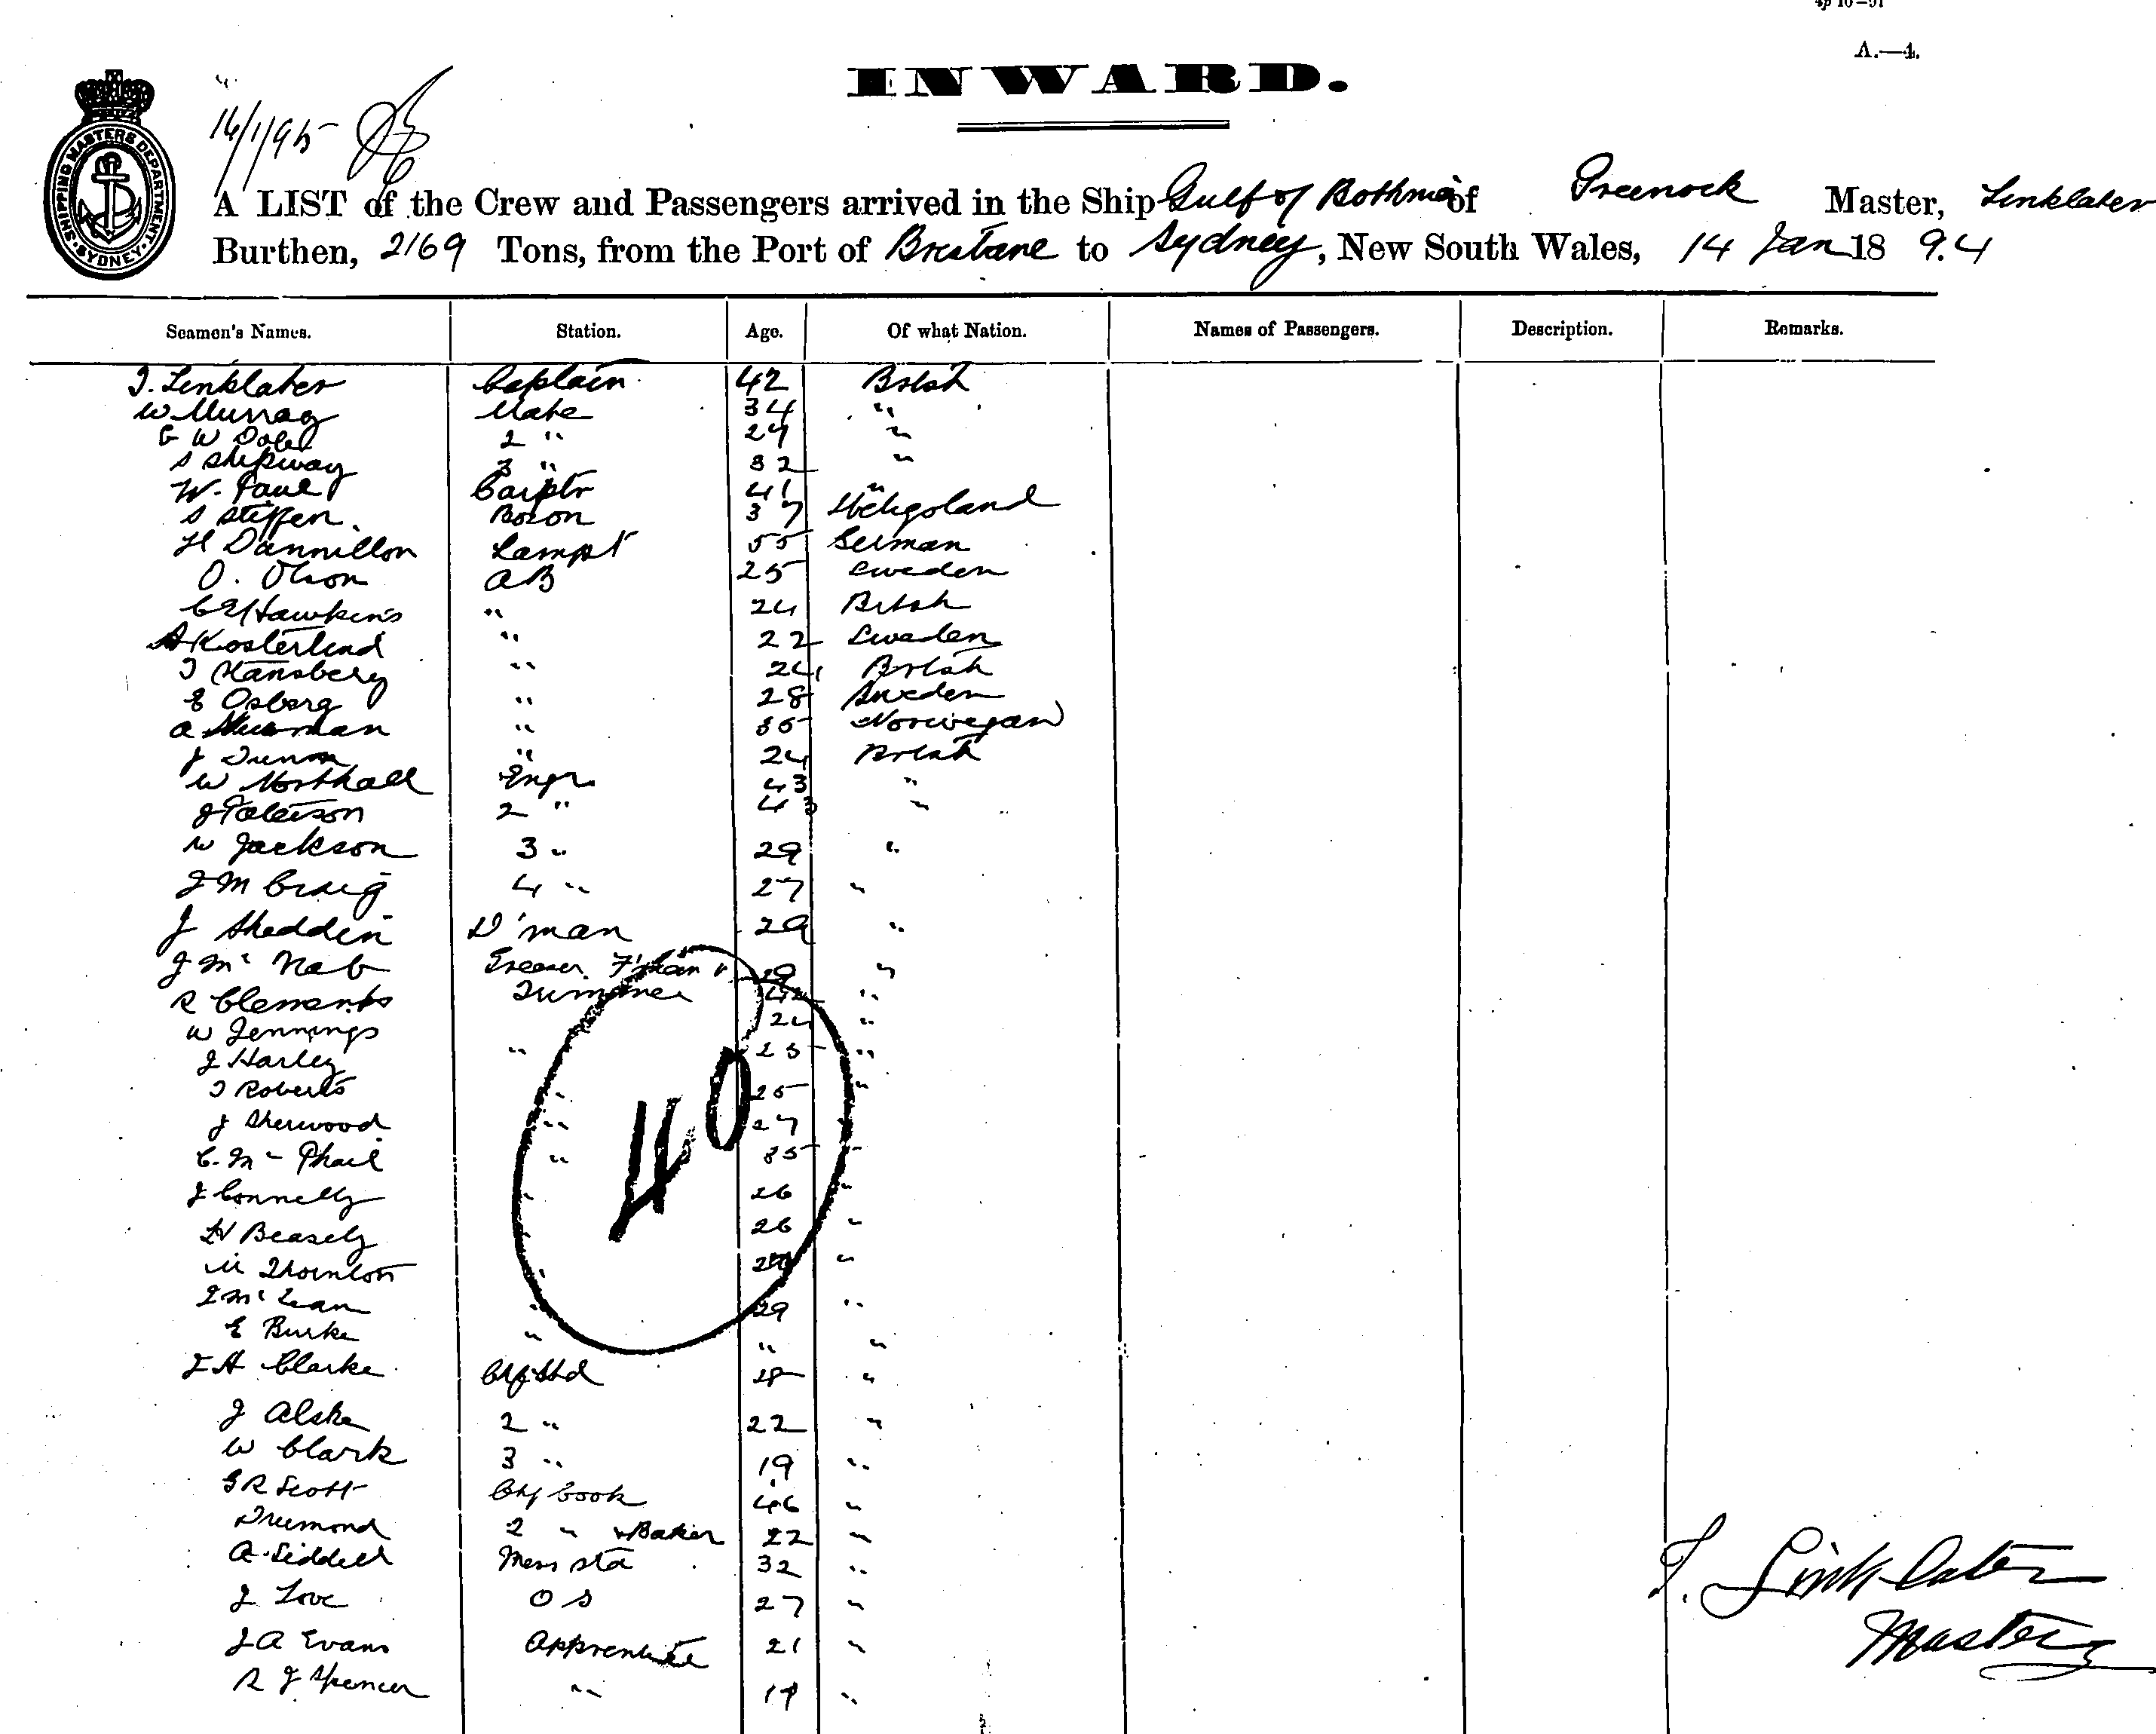 A.—4.
INWARD.
14/1/95
SHIPPING MASTERS DEPARTMENT SYDNEY
A LIST of the Crew and Passengers arrived in the Ship Gulf of Bothnia of Greenock Master, Linklater
Burthen, 2169 Tons, from the Port of Brisbane to Sydney, New South Wales, 14 Jan 1894
Seamen's Names. Station. Age. Of what Nation. Names of Passengers. Description. Remarks.
T. Linklater Captain 42 British
W Murray Mate 34 "
G W 2 " 29 "
S Shipway 3 " 32 "
W. Paul Carptr 41 "
S Steffen. Boson 37 Heligoland
H Dannillon Lampt 55 German
O. Olson AB 25 Sweden
C E Hawkins " 24 British
A Kosterlind " 22 Sweden
T Hansberg " 24 British
E Osberg " 28 Sweden
A " 35 Norwegan
J Dunn " 24 British
W Northall Engr 43 "
J Paterson 2 " 43 "
W Jackson 3 " 29 "
J M Craig 4 " 27 "
J Sheddin D'man 29 "
J Mc Nab Greaser F'man 29 "
R Clements Trimmer "
W Jennings 24 "
J Harley " 25 "
T Roberts " 25 "
J Sherwood " 27 "
C. Mc Phail " 35 "
J Connelly " 26 "
H Beasely 26 "
M Thornton " "
J Mc Lean " 29 "
E Burke " " "
J H Clarke Chf Std 28 "
J Alska 2 " 22 "
W Clark 3 " 19 "
G R Scott Chf Cook 46 "
Drumond 2 " + Baker 22 "
A. Liddell Mess Std 32 "
J Love O S 27 "
J A Evans Apprentice 21 "
R J Spencer " 19 "
40
T. Linklater
Master